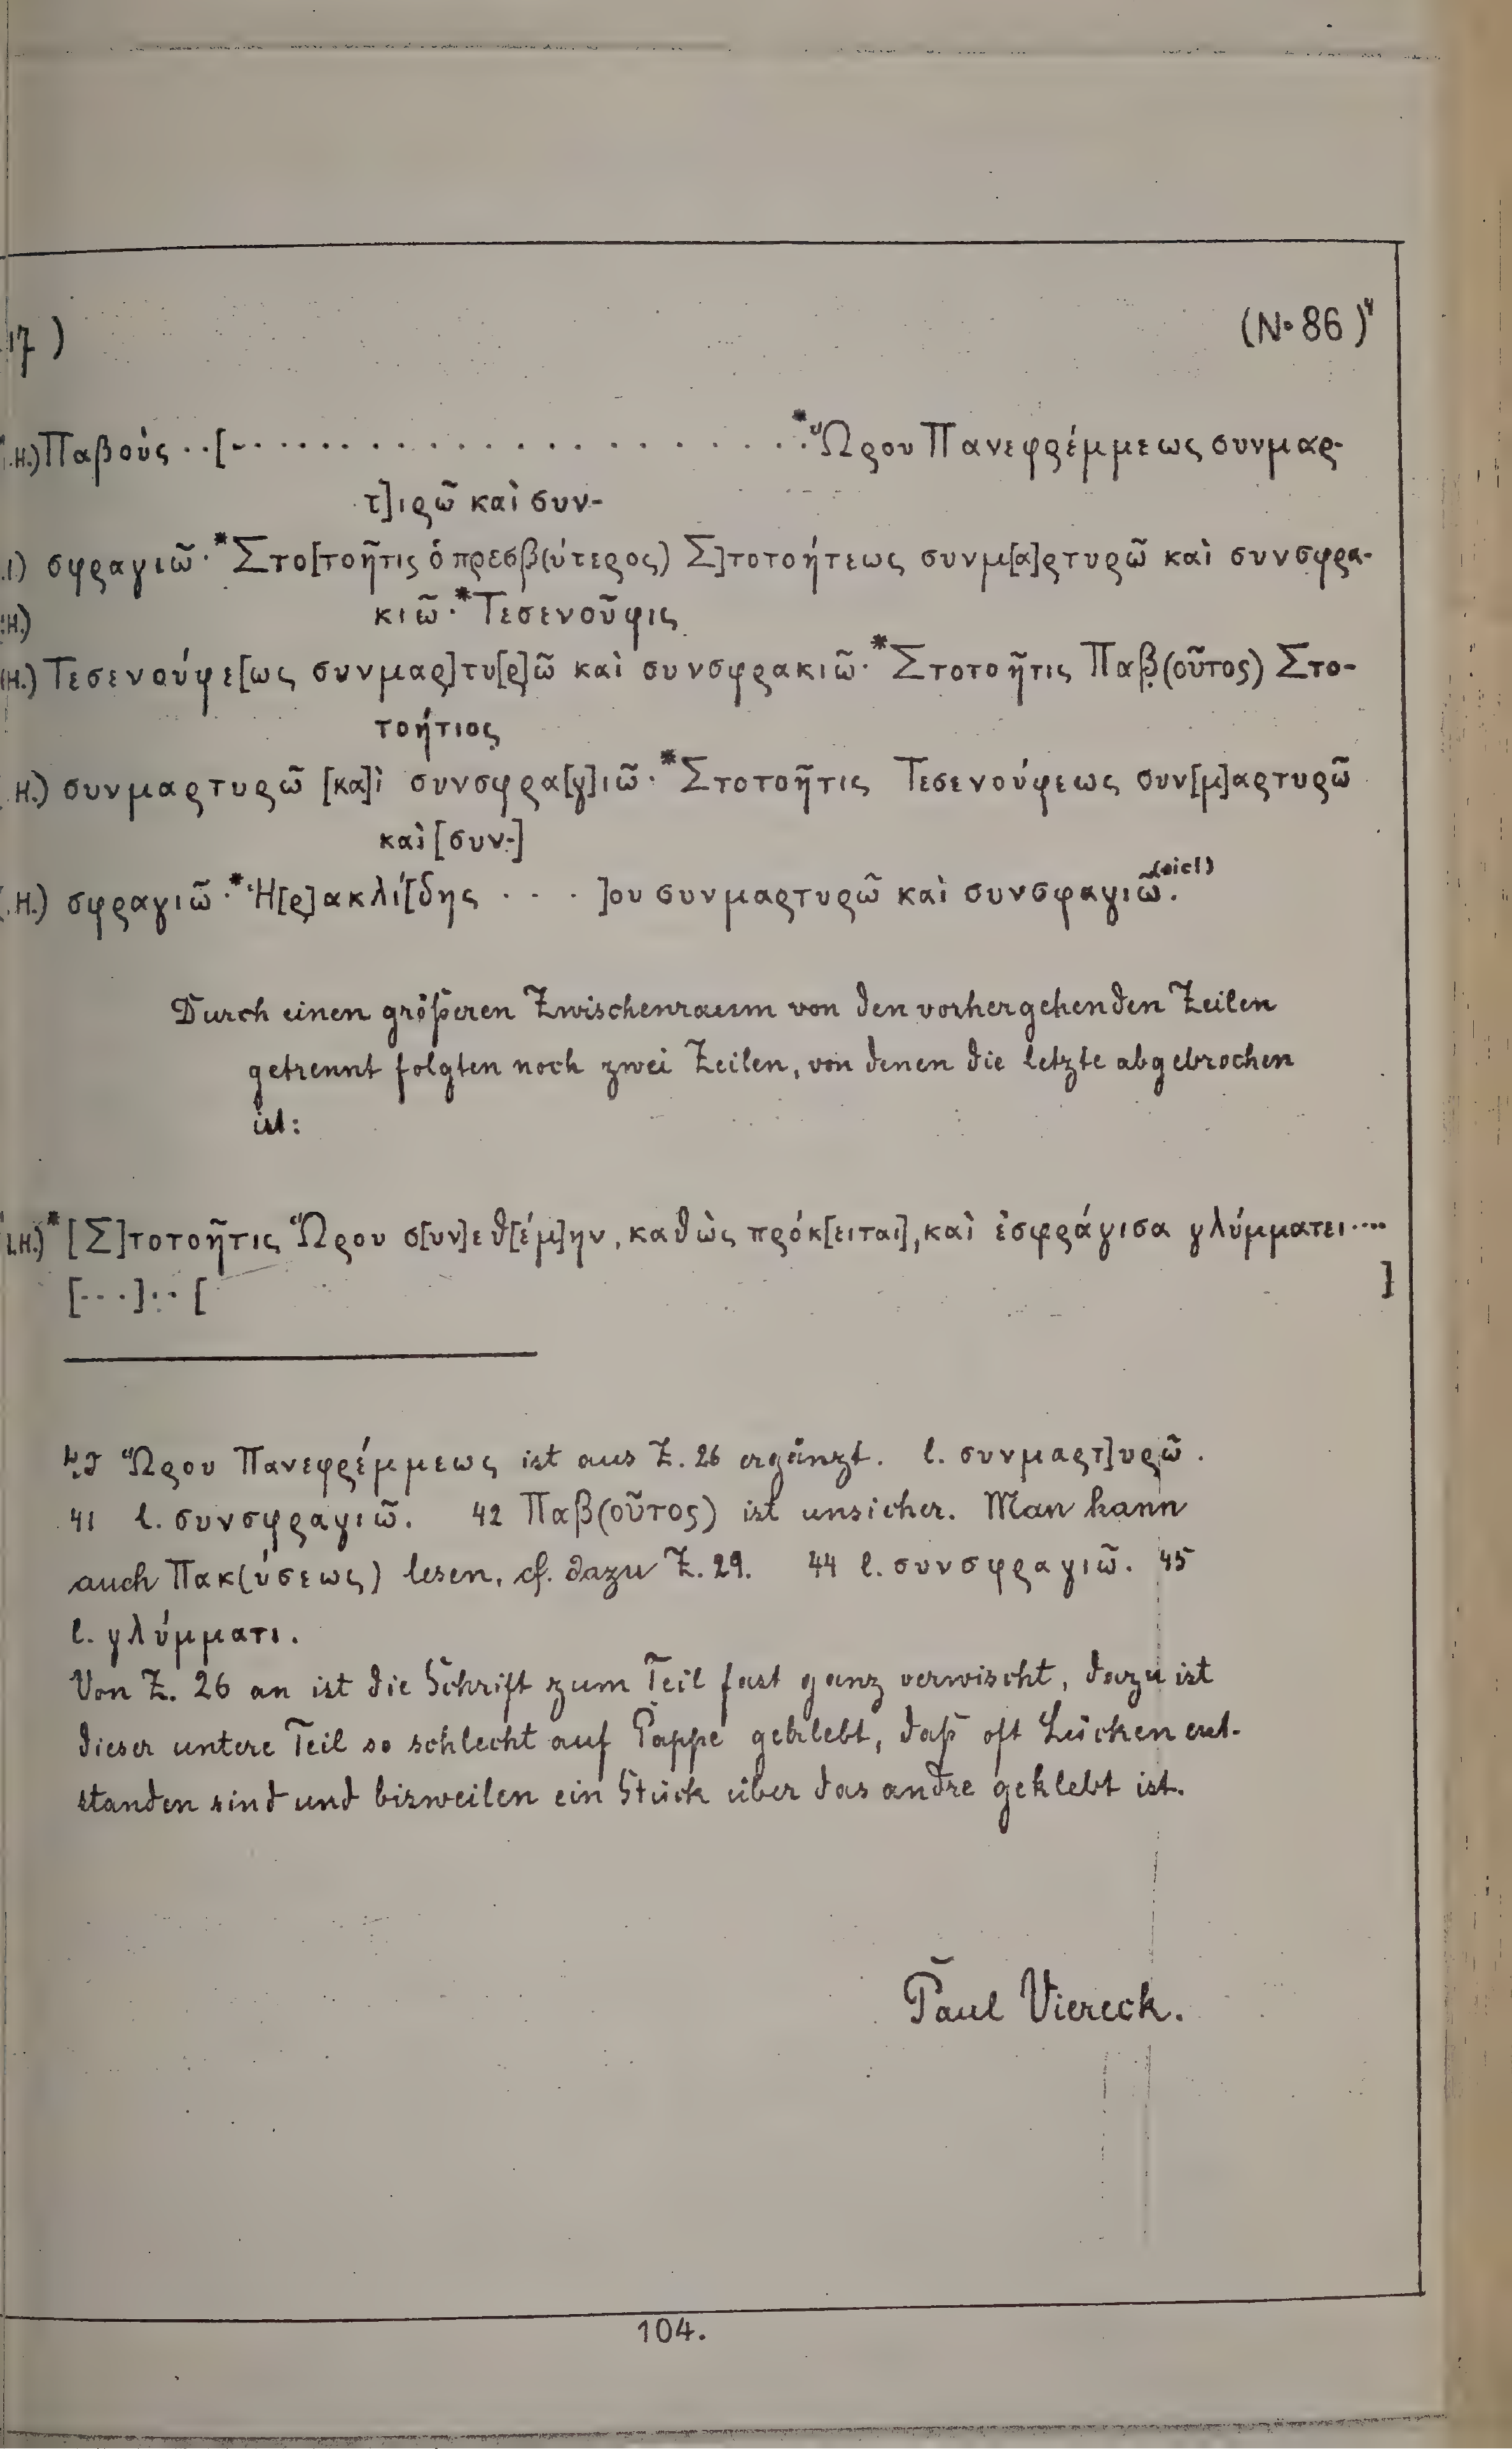 17)
(No 86)4
.H.) Παβοὺς ··[-····················*Ὥρου Πανεφρέμμεως συνμαρ-
τ]ιρῶ καὶ συν-
.I) σφραγιῶ·*Στο[τοῆτις ὁ πρεσβ(ύτερος) Σ]τοτοήτεως συνμ[α]ρτυρῶ καὶ συνσφρα-
H.) κιῶ·*Τεσενοῦφις
(H.) Τεσενούφε[ως συνμαρ]τυ[ρ]ῶ καὶ συνσφρακιῶ·*Στοτοῆτις Παβ̣(οῦτος) Στο-
τοήτιος
H.) συνμαρτυρῶ [κα]ὶ συνσφρα[γ]ιῶ·*Στοτοῆτις Τεσενούφεως συν[μ]αρτυρῶ
καὶ [συν-]
(.H.) σφραγιῶ·*Ἡ[ρ]ακλί[δης · · · ]ου συνμαρτυρῶ καὶ συνσφαγιῶ(sic!).
Durch einen größeren Zwischenraum von den vorhergehenden Zeilen
getrennt folgten noch zwei Zeilen, von denen die letzte abgebrochen
ist:
.H.)*[Σ]τοτοῆτις Ὥρου σ[υν]εθ[έμ]ην, καθὼς πρόκ[ειται], καὶ ἐσφράγισα γλύμματει····
[···]··[ ]
Ὥρου Πανεφρέμμεως ist aus Z. 26 ergänzt. l. συνμαρτ]υρῶ.
41 l. συνσφραγιῶ. 42 Παβ(οῦτος) ist unsicher. Man kann
auch Πακ(ύσεως) lesen, cf. dazu Z. 29. 44 l. συνσφραγιῶ. 45
l. γλύμματι.
Von Z. 26 an ist die Schrift zum Teil fast ganz verwischt, dazu ist
dieser untere Teil so schlecht auf Pappe geklebt, daß oft Lücken ent-
standen sind und bisweilen ein Stück über das andre geklebt ist.
Paul Viereck.
104.